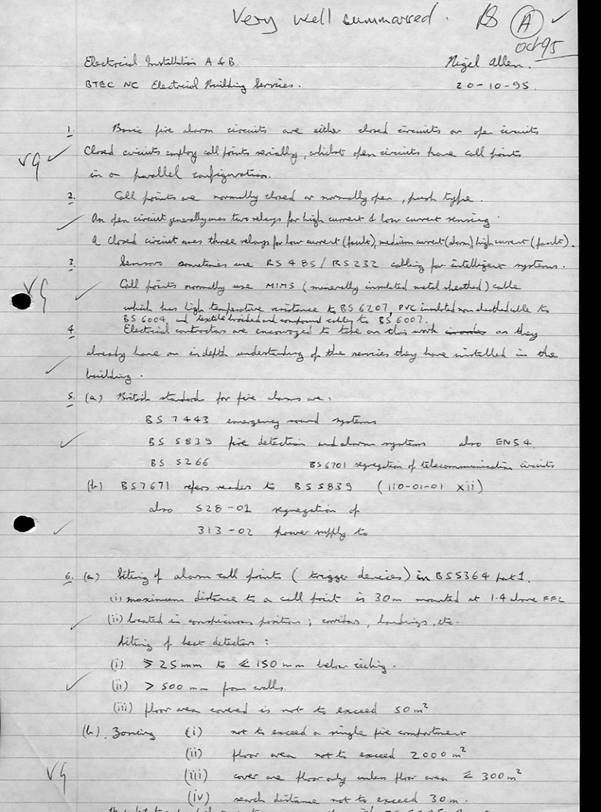 Very well summarised. BS A
Oct 95
Electrical Installation A & B Nigel Allen.
BTEC NC Electrical Building Services. 20-10-95.
1. Basic fire alarm circuits are either closed circuits or open circuits
VG Closed circuits employ call points serially, whilst open circuits have call points
in a parallel configuration.
2. Call points are normally closed or normally open, push type.
An open circuit generally uses two relays for high current & low current sensing.
A closed circuit uses three relays for low current (fault), medium current (alarm) high current (fault).
3. Sensors sometimes use RS485/RS232 cabling for intelligent systems.
VG Call points normally use MIMS (minerally insulated metal sheathed) cable
which has high temperature resistance to BS 6207, PVC insulated non sheathed cable to
BS 6004 and textile braided and compound cables to BS 6007.
4. Electrical contractors are encouraged to take on this work as they
already have an indepth understanding of the services they have installed in the
building.
5. (a) British standard for fire alarms are:
BS 7443 emergency sound systems
BS 5839 fire detection and alarm systems also EN54
BS 5266 BS6701 segregation of telecommunication circuits
(b) BS7671 refers reader to BS5839 (110-01-01 xii)
also 528-02 segregation of
313-02 power supply to
6. (a) Siting of alarm call points (trigger devices) in BS5364 part 1.
(i) maximum distance to a call point is 30m mounted at 1.4 above FFL
(ii) located in conspicuous positions; corridors, landings, etc.
Siting of heat detectors:
(i) ≥ 25mm to ≤ 150mm below ceiling.
(ii) > 500 mm from walls.
(iii) floor area covered is not to exceed 50m²
(b) Zoning (i) not to exceed a single fire compartment
(ii) floor area not to exceed 2000m²
(iii) cover one floor only unless floor area ≤ 300m²
VG (iv) search distance not to exceed 30m.